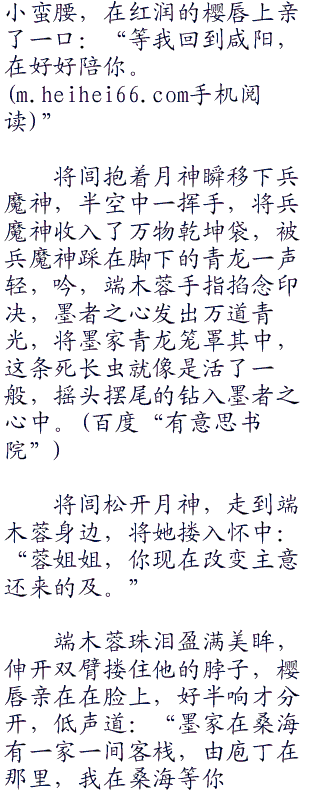 小蛮腰，在红润的樱唇上亲
了一口：“等我回到咸阳，
在好好陪你。
(m.heihei66.com手机阅
读)”
将闾抱着月神瞬移下兵
魔神，半空中一挥手，将兵
魔神收入了万物乾坤袋，被
兵魔神踩在脚下的青龙一声
轻，吟，端木蓉手指掐念印
决，墨者之心发出万道青
光，将墨家青龙笼罩其中，
这条死长虫就像是活了一
般，摇头摆尾的钻入墨者之
心中。(百度“有意思书
院”)
将闾松开月神，走到端
木蓉身边，将她搂入怀中：
“蓉姐姐，你现在改变主意
还来的及。”
端木蓉珠泪盈满美眸，
伸开双臂搂住他的脖子，樱
唇亲在在脸上，好半响才分
开，低声道：“墨家在桑海
有一家一间客栈，由庖丁在
那里，我在桑海等你